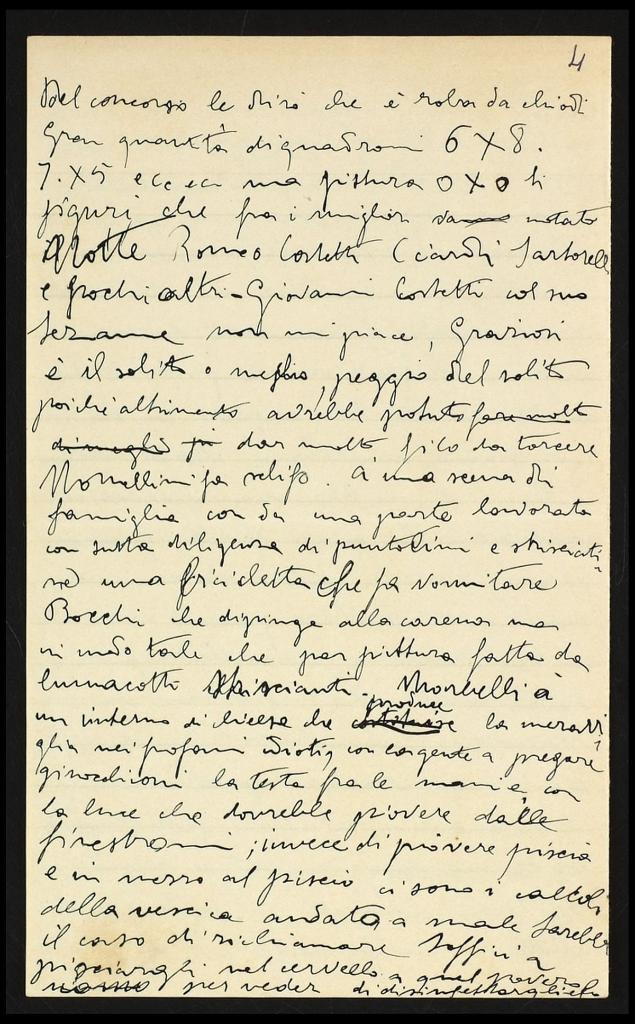 4
Del concorso le dirò che è roba da chiodi
Gran quantità di quadroni 6 X 8.
7. X 5 ecc ecc ma pittura 0 X 0 ti
figuri che fra i migliori notato
Nolle Romeo Costetti Ciardi Sartorelli
e pochi altri - Giovanni Costetti col suo
Sezanne non mi piace, Graziosi
è il solito o meglio, peggio del solito
poiché altrimenti avrebbe potuto fare molto
di meglio dar molto filo da torcere
Nomellini fa schifo. à una scena di
famiglia con da una parte lavorata
con tutta diligenza di puntolini e strisciati-
ne una bicicletta che fa vomitare
Bocchi che dipinge alla carena ma
in modo tale che par pittura fatta da
lumacotti striscianti. Morbelli à
un interno di chiesa che produce la meravi-
glia nei profani idioti, con la gente a pregare
ginocchioni la testa fra le mani e con
la luce che dovrebbe piovere dalle
finestroni; invece di piovere piscia
e in mezzo al piscio ci sono i calcoli
della vescica andata a male Sarebbe
il caso di richiamare Soffici a
pisciargli nel cervello a quel povero
uomo per veder di